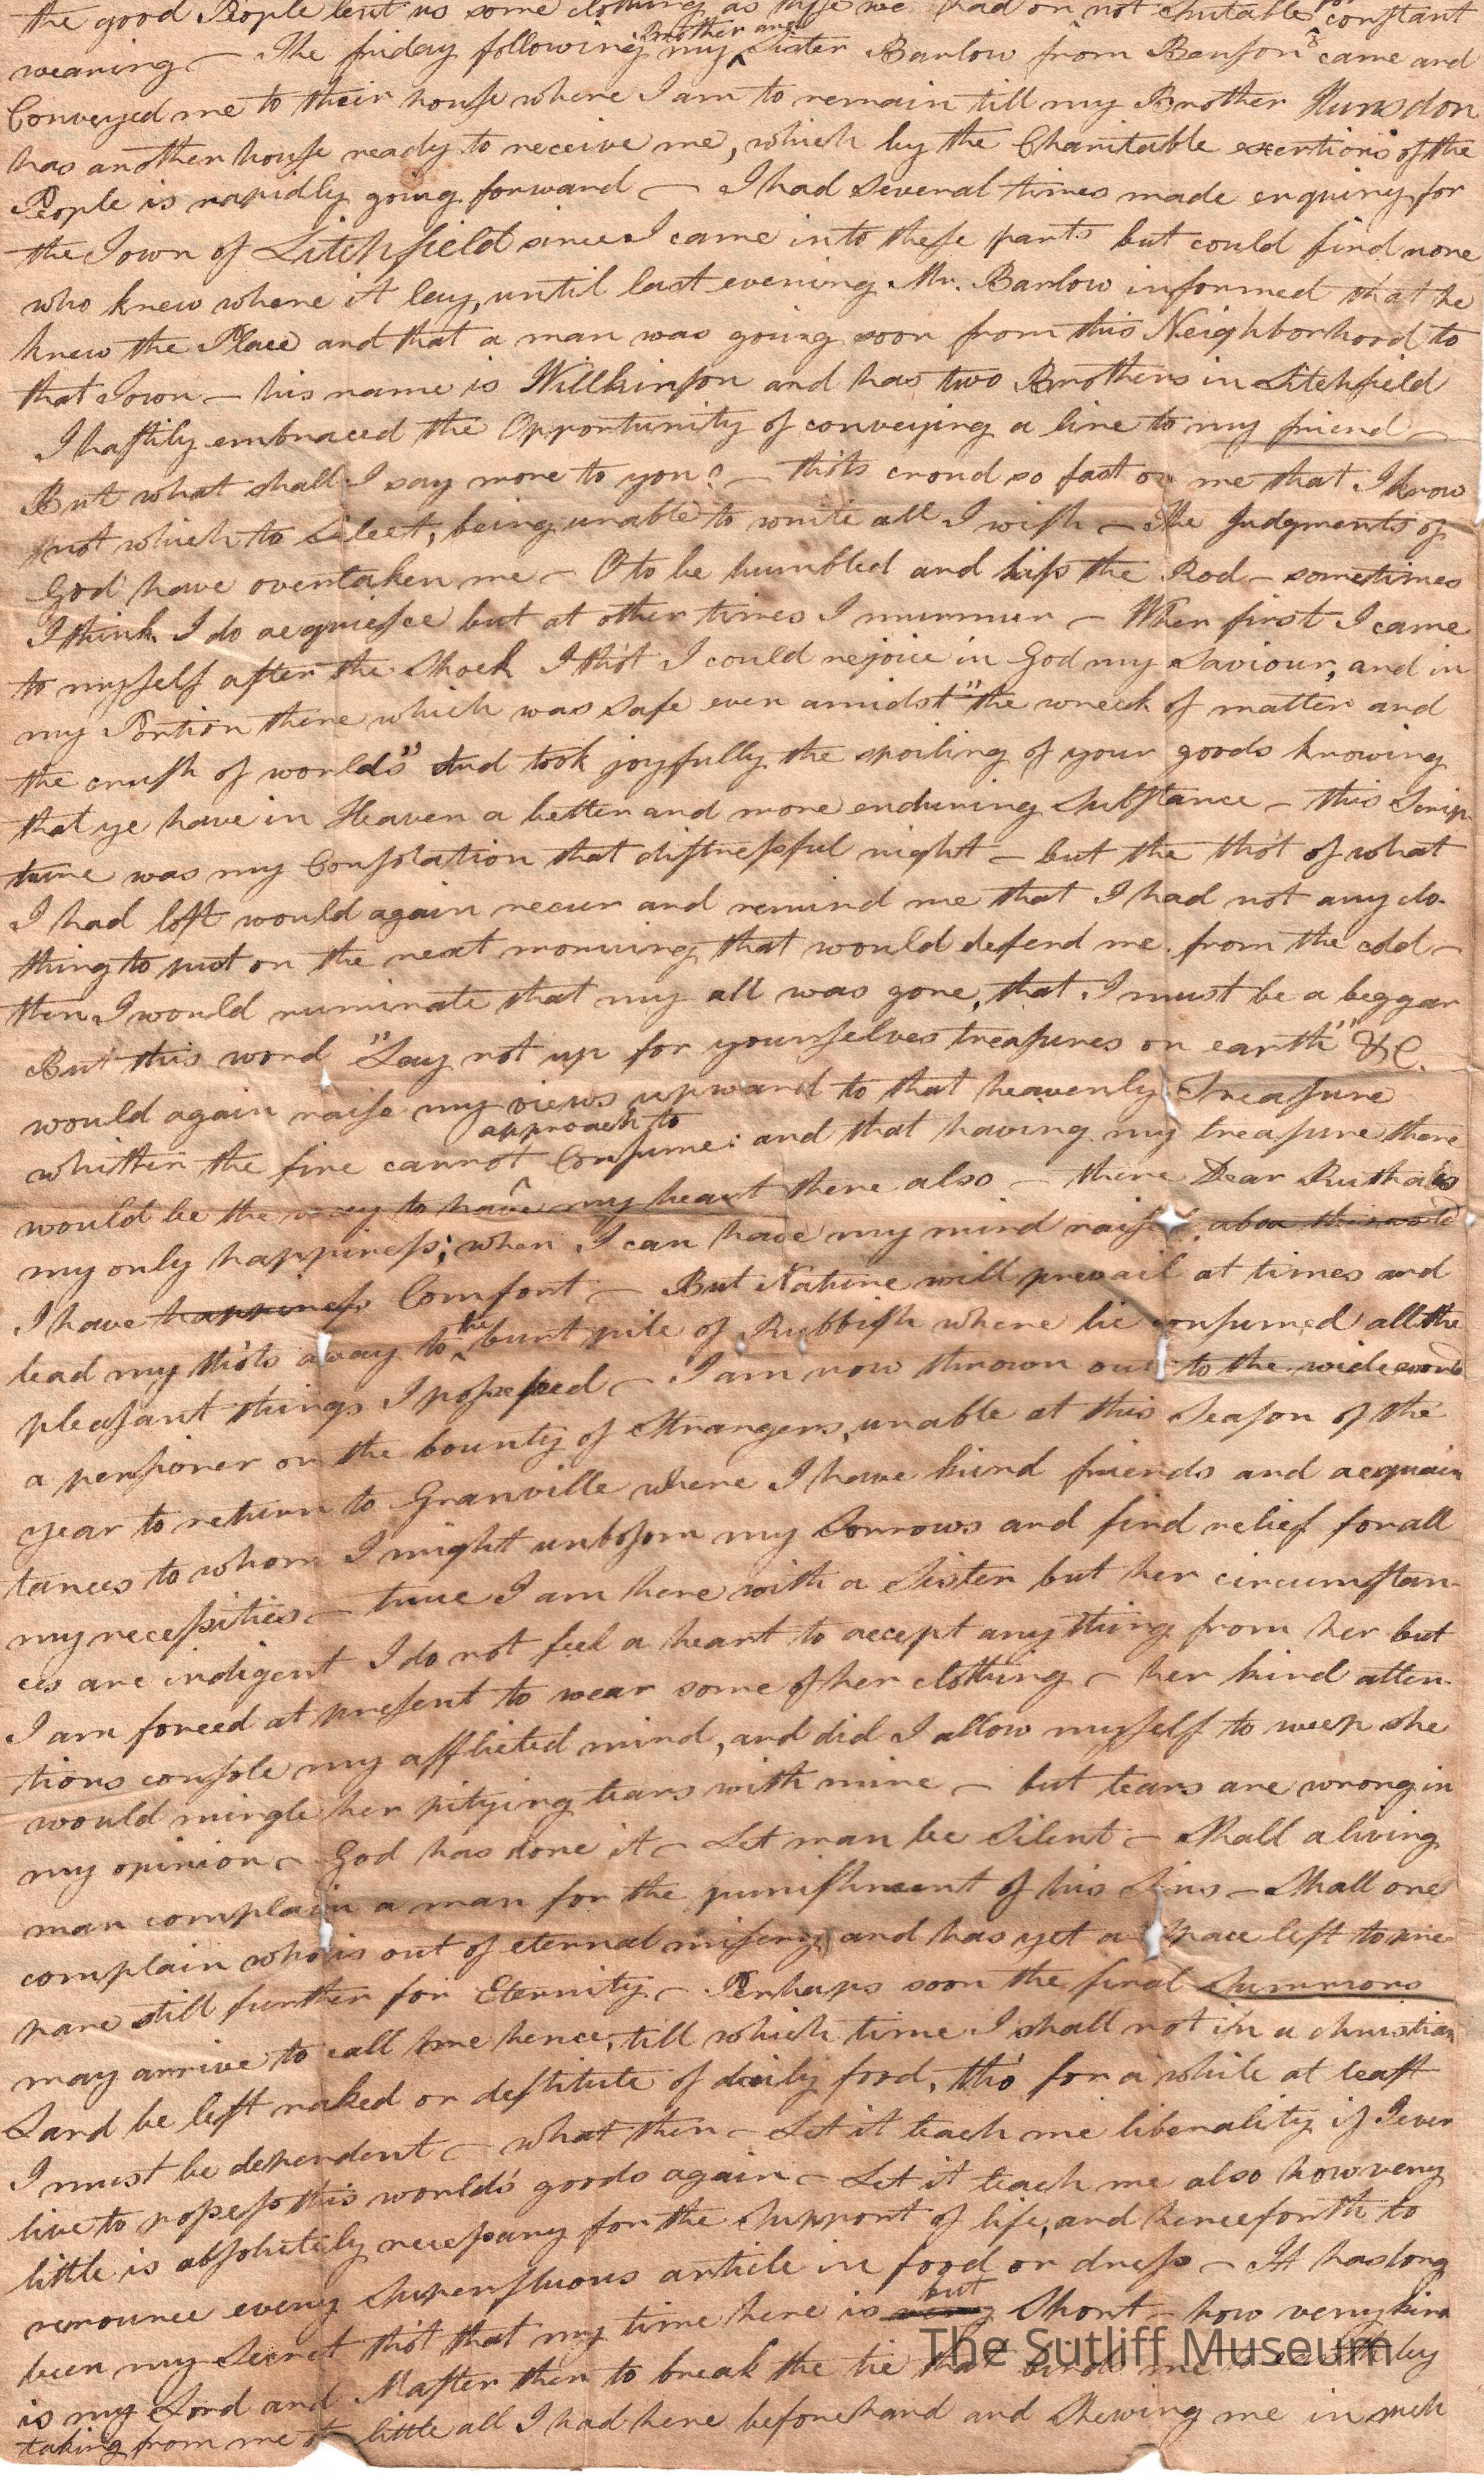 the good People lent us some clothing as those we had on not suitable for constant
wearing — The friday following my Brother and Sister Barlow from Benson came and
Conveyed me to their house where I am to remain till my Brother Hunsdon
has another house ready to receive me, which by the Charitable exertions of the
People is rapidly going forward — I had several times made enquiry for
the Town of Litchfield since I came into these parts but could find none
who knew where it lay, until last evening Mr. Barlow informed that he
knew the Place and that a man was going soon from this Neighborhood to
that Town — his name is Willkinson and has two Brothers in Litchfield
I hastily embraced the Opportunity of conveying a line to my friend —
But what shall I say more to you? — tho'ts croud so fast on me that I know
not which to select, being unable to write all I wish — The Judgments of
God have overtaken me — O to be humbled and kiss the Rod — sometimes
I think I do acquiesce but at other times I murmur — When first I came
to myself after the Shock I tho't I could rejoice in God my Saviour, and in
my Portion there which was safe even amidst "the wreck of matter and
the crush of worlds" And took joyfully the spoiling of your goods knowing
that ye have in Heaven a better and more enduring Substance — this Scrip-
ture was my Consolation that distressful night — but the tho't of what
I had lost would again recur and remind me that I had not any clo-
thing to put on the next morning that would defend me from the cold —
then I would ruminate that my all was gone, that I must be a beggar
But this word "Lay not up for yourselves treasures on earth" &C.
would again raise my views upward to that heavenly Treasure
whither the fire cannot approach to Consume: and that having my treasure there
would be the way to have my heart there also — there Dear Ruth is
my only happiness; when I can have my mind raised above this world
I have happiness Comfort — But Nature will prevail at times and
lead my tho'ts away to the burnt pile of Rubbish where lie consumed all the
pleasant things I possessed — I am now thrown out to the wide world
a pensioner on the bounty of Strangers, unable at this Season of the
year to return to Granville where I have kind friends and acquain
tances to whom I might unbosom my Sorrows and find relief for all
my necessities — true I am here with a Sister but her circumstan-
ces are indigent I do not feel a heart to accept any thing from her but
I am forced at present to wear some of her clothing — her kind atten-
tions console my afflicted mind, and did I allow myself to weep she
would mingle her pitying tears with mine — but tears are wrong in
my opinion — God has done it — Let man be Silent — Shall a living
man complain a man for the punishment of his Sins — Shall one
complain who is out of eternal misery, and has yet a Space left to pre-
pare still further for Eternity — Perhaps soon the final Summons
may arrive to call me hence, till which time I shall not in a christian
Land be left naked or destitute of daily food, tho' for a while at least
I must be dependent — what then — Let it teach me liberality if I ever
live to possess this world's goods again — Let it teach me also how very
little is absolutely necessary for the Support of life, and henceforth to
renounce every Superfluous article in food or dress — It has long
been my Secret tho't that my time here is very but Short — how very kind
is my Lord and Master then to break the tie that binds me to earth by
taking from me the little all I had here beforehand and Shewing me in such
The Sutliff Museum